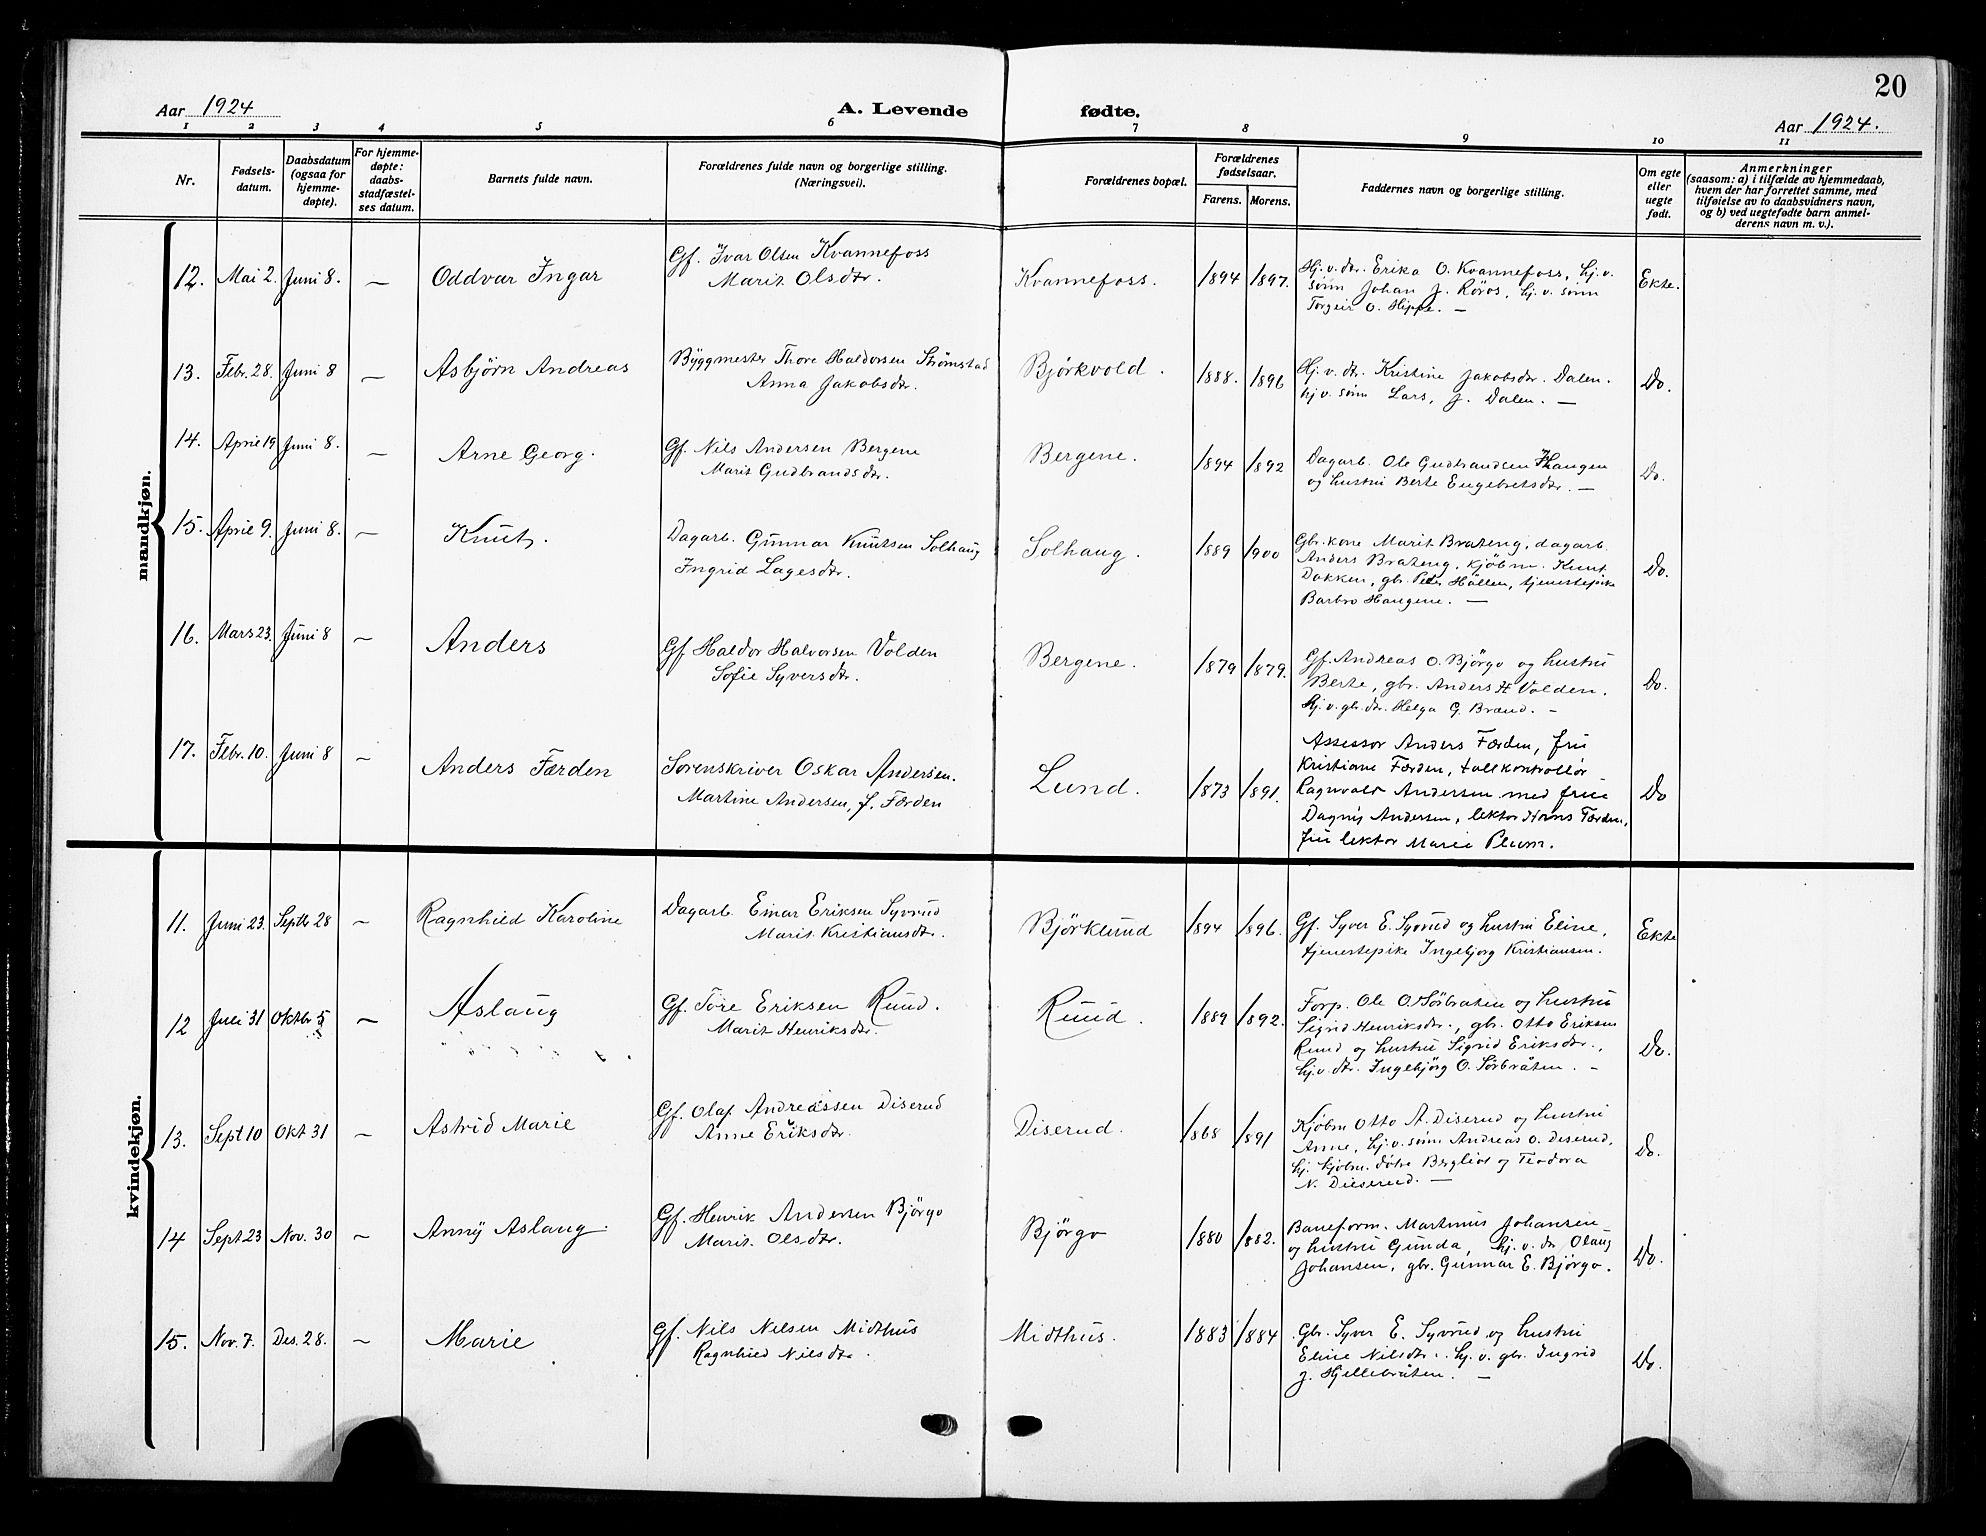 20
Aar 1924
A. Levende fødte.
Aar 1924.
1 2 3 4 5 6 7 8 9 10 11
Nr.
Fødsels-
datum.
Daabsdatum
(ogsaa for
hjemme-
døpte).
For hjemme-
døpte:
daabs-
stadfæstel-
ses datum.
Barnets fulde navn.
Forældrenes fulde navn og borgerlige stilling.
(Næringsvei).
Forældrenes bopæl.
Forældrenes
fødselsaar.
Farens. Morens.
Faddernes navn og borgerlige stilling.
Om egte
eller
uegte
født.
Anmerkninger
(saasom: a) i tilfælde av hjemmedaab,
hvem der har forrettet samme, med
tilføielse av to daabsvidners navn,
og b) ved uegtefødte barn anmel-
derens navn m. v.).
mandkjøn.
12. Mai 2. Juni 8. — Oddvar Ingar
Gf. Ivar Olsen Kvannefoss
Marit Olsdtr.
Kvannefoss. 1894 1897.
Hj.v.dtr. Erika O. Kvannefoss, hj.v.
sønn Johan J. Røros, hj.v. sønn
Torgeir O. Hippe. —
Ekte.
13. Febr. 28. Juni 8 — Asbjørn Andreas
Byggmester Thore Haldorsen Strømstad
Anna Jakobsdtr.
Bjørkvold. 1888. 1896
Hj.v.dtr. Kristine Jakobsdtr. Dalen.
hj.v. sønn Lars, J. Dalen. —
Do.
14. April 19 Juni 8. — Arne Georg.
Gf. Nils Andersen Bergene
Marit Gudbrandsdtr.
Bergene. 1894 1892
Dagarb. Ole Gudbrandsen Haugen
og hustru Berte Engebretsdtr. —
Do.
15. April 9. Juni 8. — Knut.
Dagarb. Gunnar Knutsen Solhaug
Ingrid Lagesdtr.
Solhaug. 1889 1900
Gbr.kone Marit Brateng, dagarb.
Anders Brateng, kjøbm. Knut
Dokken, gbr. Peder Hallen, tjenestepike
Barbro Haugene. —
Do.
16. Mars 23. Juni 8 — Anders
Gf Haldor Halvorsen Volden
Sofie Syversdtr.
Bergene. 1879 1879.
Gf. Andreas O. Bjørgo og hustru
Berte, gbr. Anders H Volden.
Hj.v.gbr.dtr. Helga G. Brænd. —
Do.
17. Febr. 10. Juni 8 — Anders Færden
Sorenskriver Oskar Andersen.
Martine Andersen, f. Færden
Lund. 1873 1891.
Assessor Anders Færden, fru
Kristiane Færden, tollkontrollør
Ragnvald Andersen med frue
Dagny Andersen, lektor Hans Færden,
fru lektor Marie Plum.
Do
kvindekjøn.
11. Juni 23. Septbr 28 — Ragnhild Karoline
Dagarb. Einar Eriksen Syvrud
Marit Kristiansdtr.
Bjørklund 1894 1896.
Gf. Syver E. Syvrud og hustru Eline,
tjenestepike Ingebjorg Kristiansen.
Ekte
12 Juli 31 Oktbr 5 — Aslaug
Gf. Tore Eriksen Ruud.
Marit Henriksdtr.
Ruud. 1889 1892.
Forp. Ole O. Sørbraten og hustru
Sigrid Henriksdtr., gbr. Otto Eriksen
Ruud og hustru Sigrid Eriksdtr.,
hj.v.dtr. Ingebjörg O. Sørbråten. —
Do.
13. Sept 10 Okt 31 — Astrid Marie
Gf. Olaf Andreassen Diserud
Anne Eriksdtr.
Diserud. 1868 1891
Kjøbm Otto A. Diserud og hustru
Anne, hj.v. sønn Andreas O. Diserud,
hj. kjøbm. døtre Bergliot og Teodora
N. Diserud. —
Do.
14 Sept 23 Nov. 30 — Anny Aslaug.
Gf. Henrik Andersen Bjørgo
Marit Olsdtr.
Bjørgo 1880 1882.
Baneform. Martinus Johansen
og hustru Gunda, hj.v.dtr Olaug
Johansen, gbr. Gunnar E. Bjørgo.
Do.
15. Nov. 7. Des. 28. — Marie
Gf. Nils Nilsen Midthus
Ragnhild Nilsdtr.
Midthus. 1883 1884
Gbr. Syver E. Syvrud og hustru
Eline Nilsdtr. hj. v. gbr. Ingrid
J. Hjellebråten. —
Do.